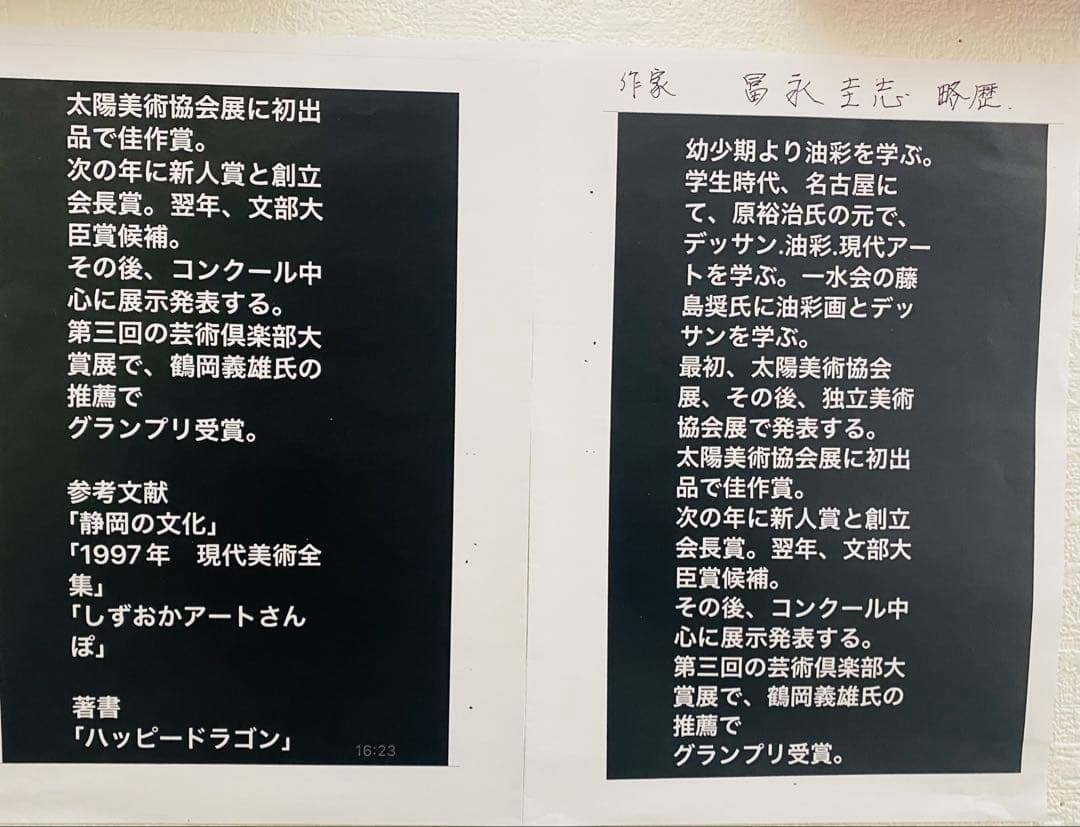 太陽美術協会展に初出
品で佳作賞。
次の年に新人賞と創立
会長賞。翌年、文部大
臣賞候補。
その後、コンクール中
心に展示発表する。
第三回の芸術倶楽部大
賞展で、鶴岡義雄氏の
推薦で
グランプリ受賞。
参考文献
「静岡の文化」
「1997年　現代美術全
集」
「しずおかアートさん
ぽ」
著書
「ハッピードラゴン」
16:23
作家　冨永圭志　略歴.
幼少期より油彩を学ぶ。
学生時代、名古屋に
て、原裕治氏の元で、
デッサン.油彩.現代アー
トを学ぶ。一水会の藤
島奨氏に油彩画とデッ
サンを学ぶ。
最初、太陽美術協会
展、その後、独立美術
協会展で発表する。
太陽美術協会展に初出
品で佳作賞。
次の年に新人賞と創立
会長賞。翌年、文部大
臣賞候補。
その後、コンクール中
心に展示発表する。
第三回の芸術倶楽部大
賞展で、鶴岡義雄氏の
推薦で
グランプリ受賞。